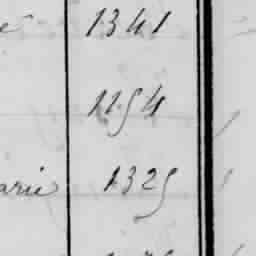 1341
1154
arie 1325